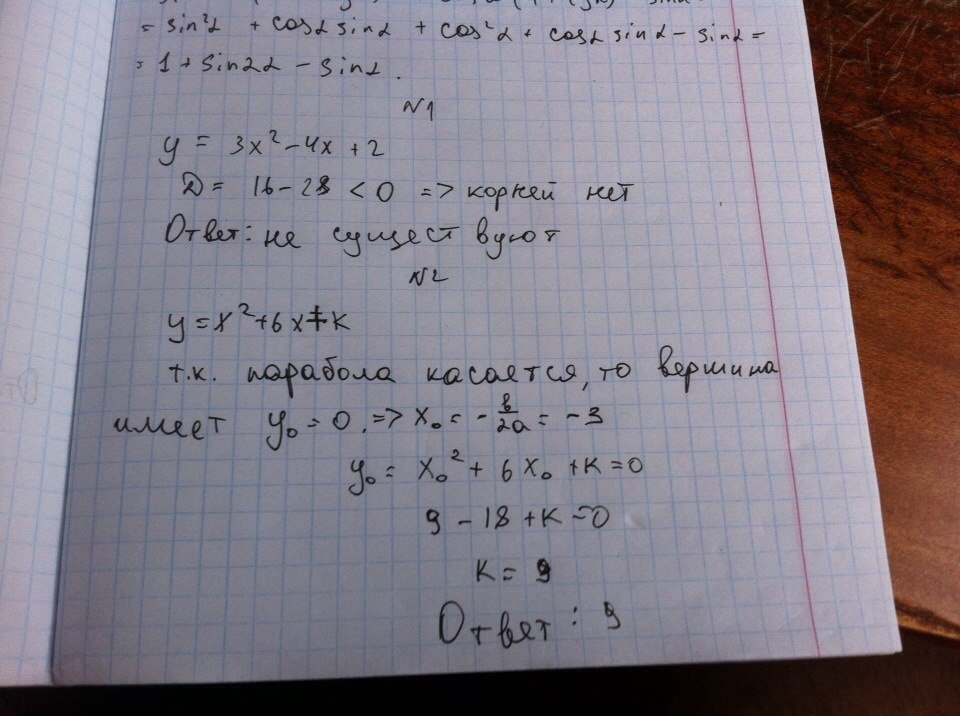 = sin²α + cosα sinα + cos²α + cosα sinα – sinα =
= 1 + sin2α – sinα.
N1
y = 3x² – 4x + 2
D = 16 – 28 < 0 => корней нет
Ответ: не существуют
N2
y = x² + 6x + k
т.к. парабола касается, то вершина
имеет y₀ = 0. => x₀ = - в/2a = -3
y₀ = x₀² + 6x₀ + k = 0
9 – 18 + k = 0
k = 9
Ответ: 9